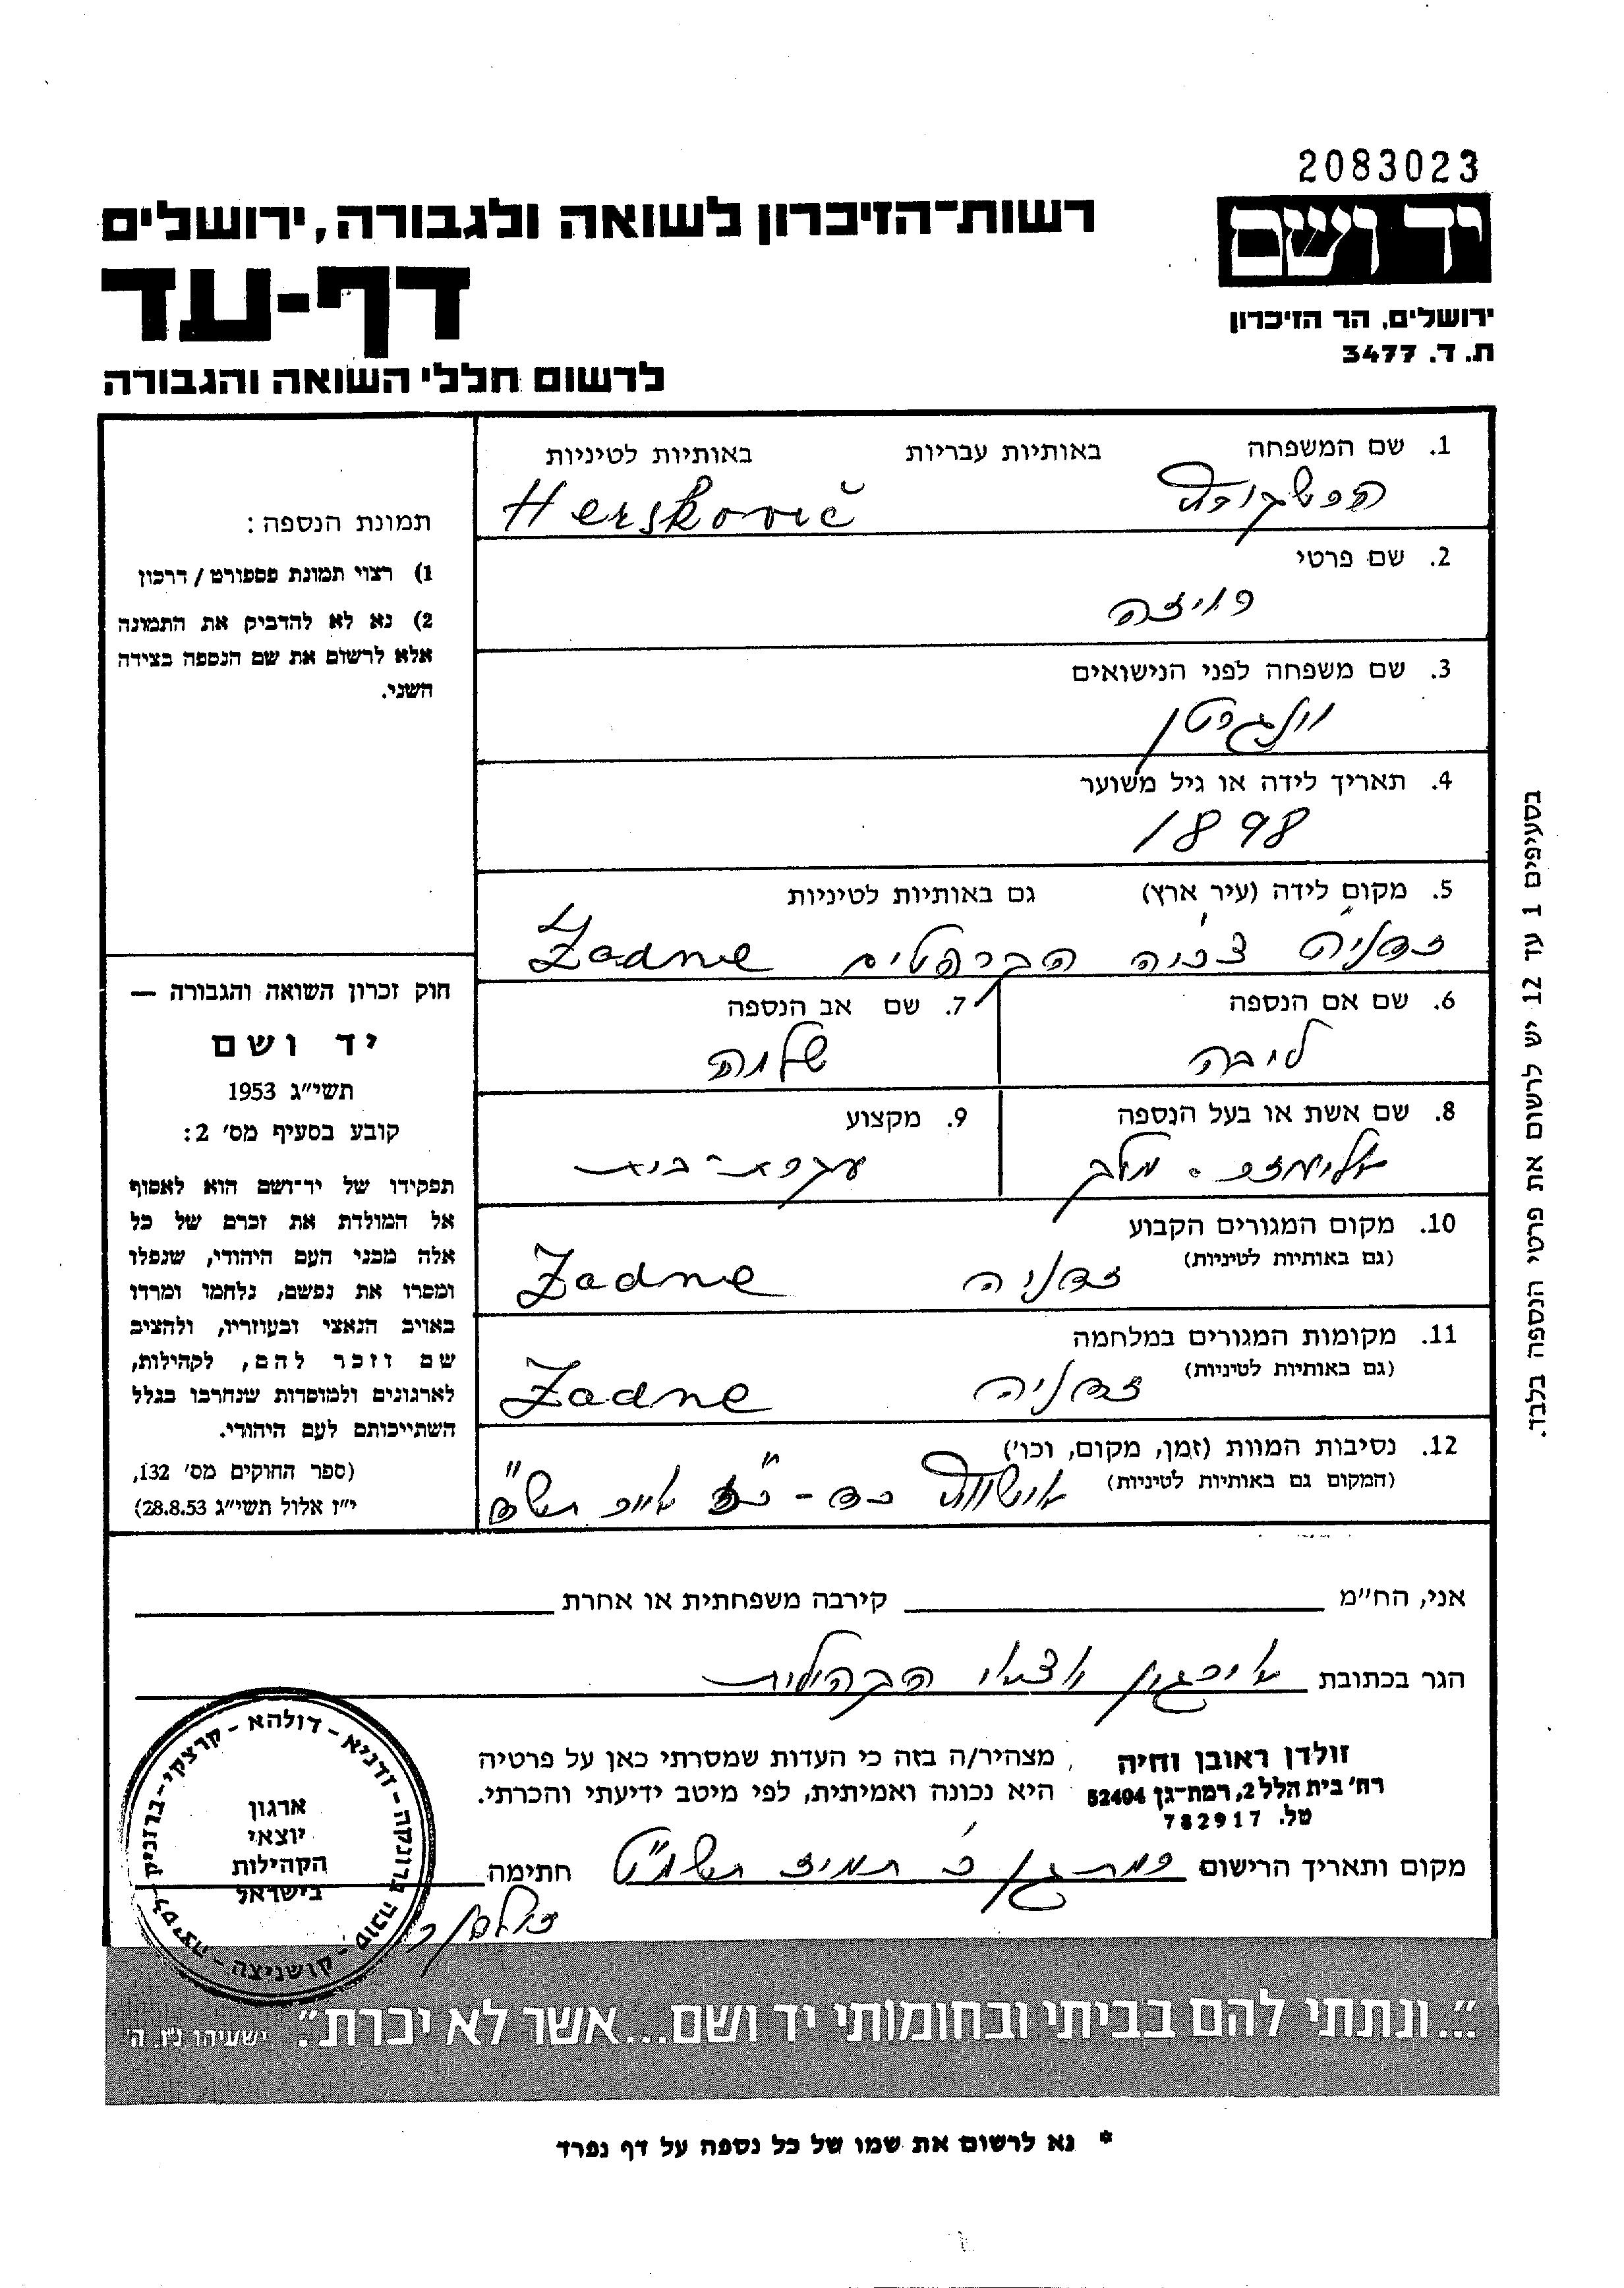 2083023
יד ושם
ירושלים, הר הזיכרון
ת. ד. 3477
רשות-הזיכרון לשואה ולגבורה, ירושלים
דף-עד
לרשום חללי השואה והגבורה
1. שם המשפחה באותיות עבריות באותיות לטיניות
הרשקוביץ Herskovič
2. שם פרטי
רויזה
3. שם משפחה לפני הנישואים
4. תאריך לידה או גיל משוער
1898
5. מקום לידה (עיר ארץ) גם באותיות לטיניות
זדניה צ'כיה הקרפטים Zadne
6. שם אם הנספה 7. שם אב הנספה
ליבה שלמה
8. שם אשת או בעל הנספה 9. מקצוע
אליעזר עקרת-בית
10. מקום המגורים הקבוע
(גם באותיות לטיניות)
זדניה Zadne
11. מקומות המגורים במלחמה
(גם באותיות לטיניות)
זדניה Zadne
12. נסיבות המוות (זמן, מקום, וכו')
(המקום גם באותיות לטיניות)
אושוויץ כד - כז אייר תש"ד
תמונת הנספה:
1) רצוי תמונת פספורט / דרכון
2) נא לא להדביק את התמונה
אלא לרשום את שם הנספה בצידה
השני.
חוק זכרון השואה והגבורה —
יד ושם
תשי"ג 1953
קובע בסעיף מס' 2:
תפקידו של יד-ושם הוא לאסוף
אל המולדת את זכרם של כל
אלה מבני העם היהודי, שנפלו
ומסרו את נפשם, נלחמו ומרדו
באויב הנאצי ובעוזריו, ולהציב
שם וזכר להם, לקהילות,
לארגונים ולמוסדות שנחרבו בגלל
השתייכותם לעם היהודי.
(ספר החוקים מס' 132,
י"ז אלול תשי"ג 28.8.53)
בסעיפים 1 עד 12 יש לרשום את פרטי הנספה בלבד.
אני, הח"מ קירבה משפחתית או אחרת
הגר בכתובת אירגון יוצאי הקהילות
זולדן ראובן וחיה
רח' בית הלל 2, רמת-גן 52404
טל. 782917
מצהיר/ה בזה כי העדות שמסרתי כאן על פרטיה
היא נכונה ואמיתית, לפי מיטב ידיעתי והכרתי.
מקום ותאריך הרישום רמת גן כ' תמוז תשמ"ט חתימה
זולדן ר
ארגון
יוצאי
הקהילות
בישראל
זדניא - דולהא - קרצקי - ברוניק - לסיצה - קושניצה - סובה ברונקה
"...ונתתי להם בביתי ובחומותי יד ושם...אשר לא יכרת". ישעיהו נ"ו, ה'
* נא לרשום את שמו של כל נספה על דף נפרד